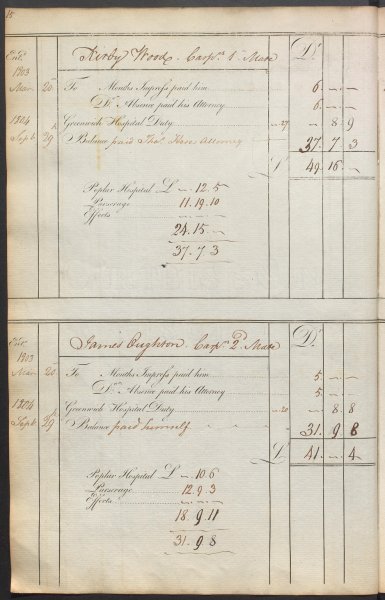 15
Kirby Wood. Carpr. 1st Mate Dr.
Entd.
1803
Mar. 20 To Months Imprest paid him 6 .. —. —
Do. Absence paid his Attorney 6 .. —. —
1804 Greenwich Hospital Duty — 27 — . 8 . 9
Septr. 29 Balance paid Thos. Attorney 37 . 7 . 3
£ 49 . 16 . —
Poplar Hospital £ — . 12 . 5
Purserage 11 . 19 . 10
Effects — . — . —
24 . 15 . —
37 . 7 . 3
James Oughton. Carpr. 2d. Mate Dr.
Entd.
1803
Mar. 20 To Months Imprest paid him 5 . — . —
Do. Absence paid his Attorney 5 . — . —
1804 Greenwich Hospital Duty — 20 — . 8 . 8
Septr. 29 Balance paid himself 31 . 9 . 8
£ 41 . — . 4
Poplar Hospital £ — . 10 . 6
Purserage 12 . 9 . 3
Effects — . — . —
18 . 9 . 11
31 . 9 . 8